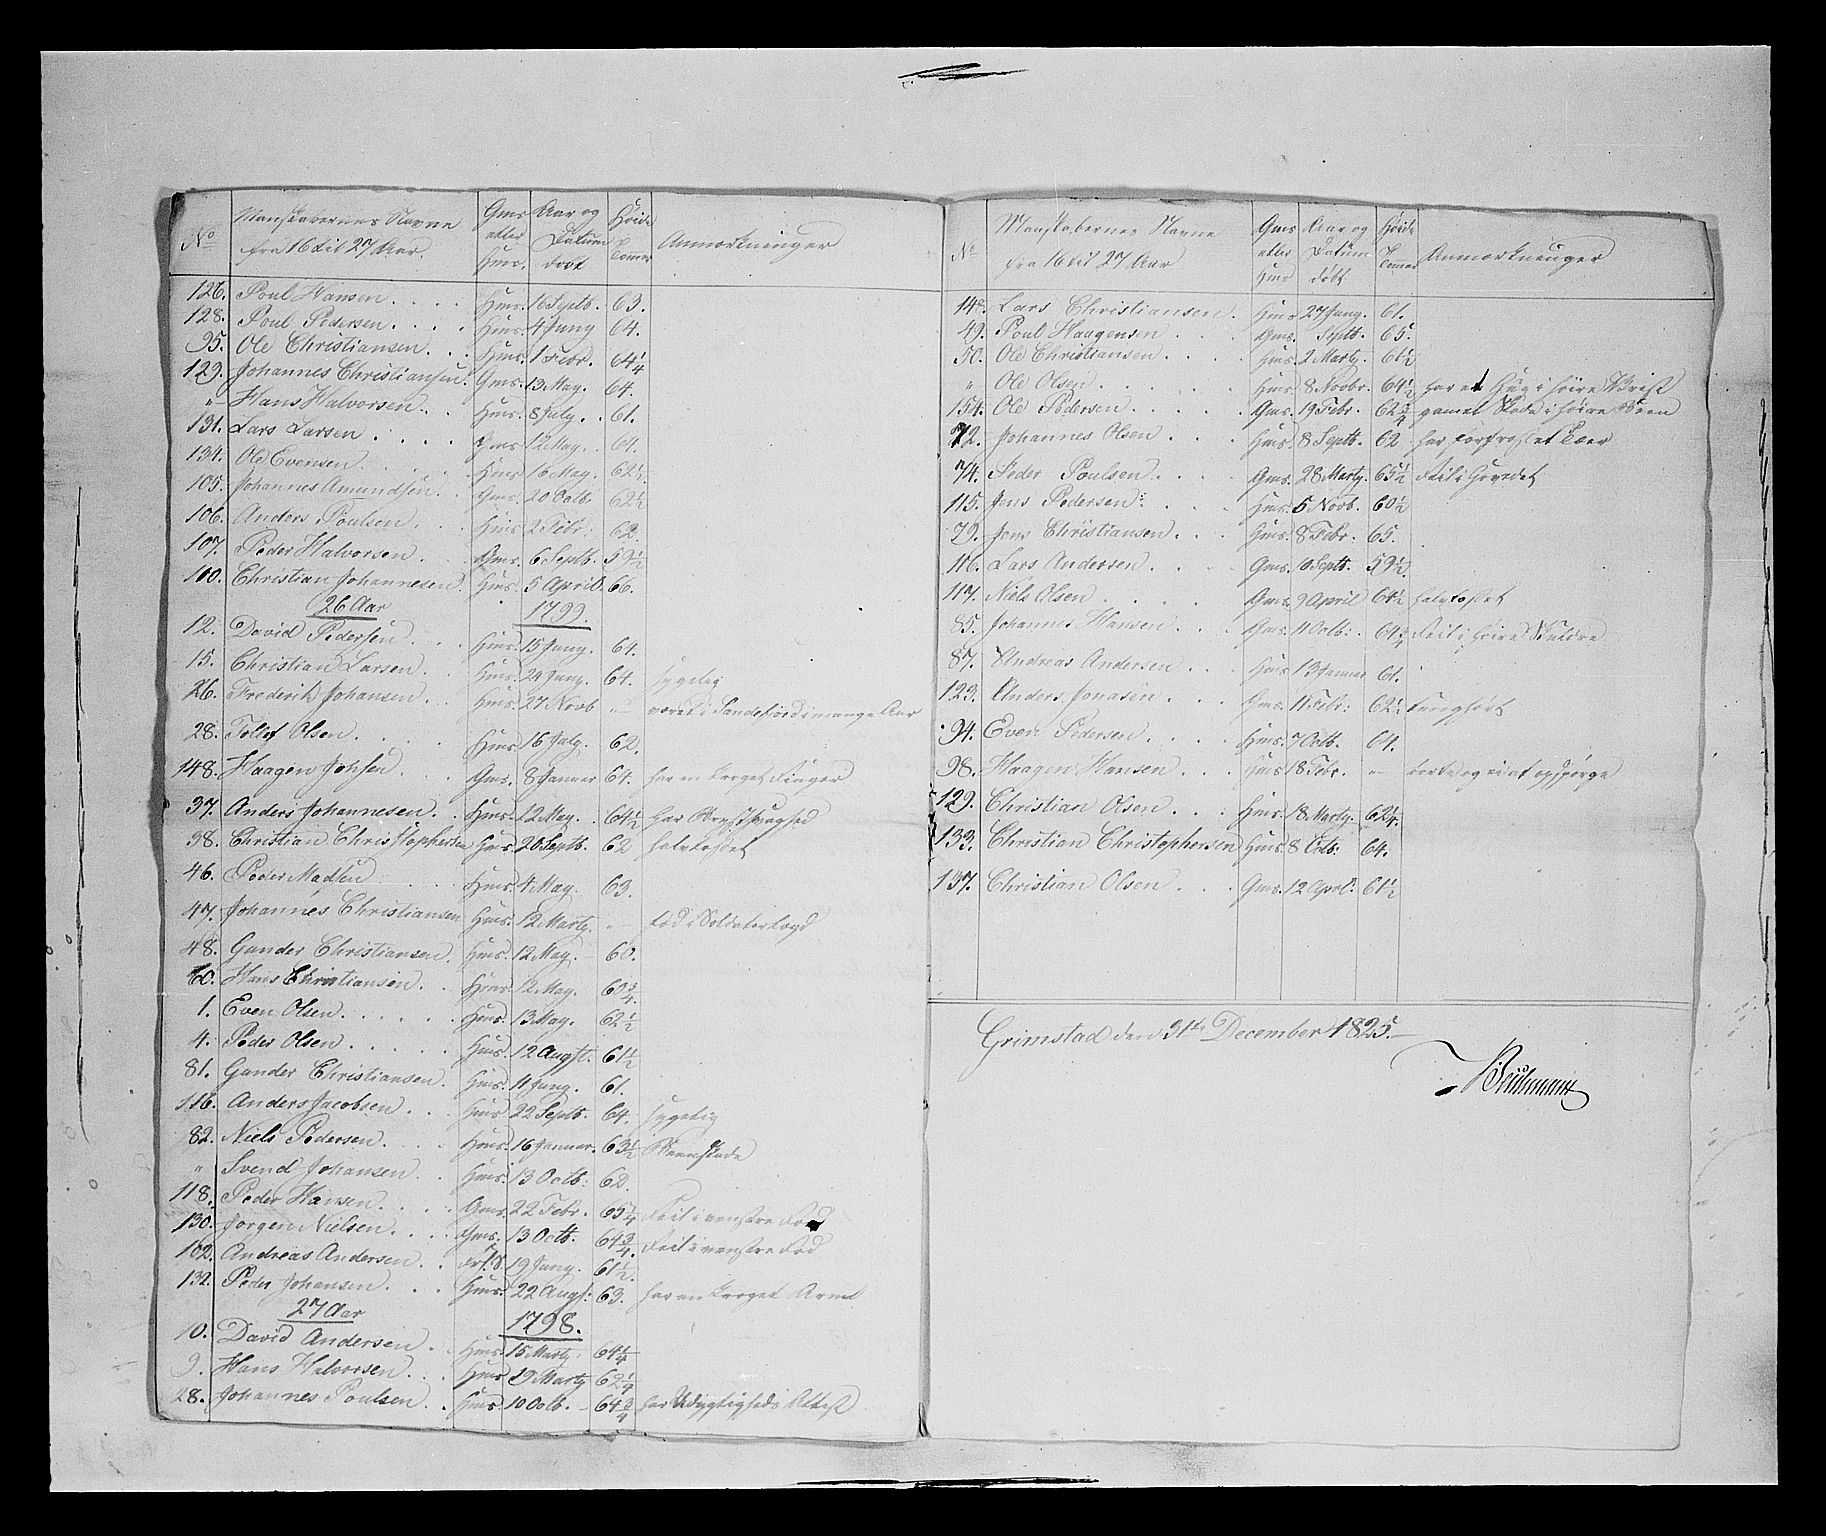 No Mandskabernes Navne fra 16 til 27 Aar. Gms eller Hus. Aar og Datum født Høide p Tomer Anmærkninger
126. Poul Hansen Hus. 16 Septb. 63.
128. Poul Pedersen Hus. 4 Juny 64.
95. Ole Christiansen Hus. 1 Febr. 64 1/4
129. Johannes Christiansen Gms. 13 May. 64.
" Hans Halvorsen Hus. 8 July. 61.
131. Lars Larsen Gms. 12 May. 64.
134. Ole Evensen Hus 16 May. 62 1/2
105. Johannes Amundsen Gms. 20 Octb. 62 1/2
106. Anders Poulsen Hus 2 Febr: 62.
107. Peder Halvorsen Gms. 6 Septb. 59 1/2
100. Christian Johannesen Hus. 5 April. 66.
26 Aar 1799.
12. David Pedersen Hus. 15 Juny. 64.
15. Christian Larsen Hus. 24 Juny. 64. sygelig
26. Frederik Johansen Hus. 27 Novb " været i Sandefiord i mange Aar
28. Tollef Olsen Hus. 16 July. 62.
148. Haagen Johsen Gms. 8 Januar 64. har en kroget Finger
37. Anders Johannesen Hus. 12 May. 64 1/2 har Brystsvaghed
38. Christian Christophersen Hus 20 Septb. 62
46. Peder Madsen Hus. 4 May. 63.
47. Johannes Christiansen Hus. 12 Marty. " død i Soldatertogd
48. Gunder Christiansen Hus. 12 May. 60.
60. Hans Christiansen Hus. 12 May. 60 3/4
1. Even Olsen Hus. 13 May. 62 1/2
4. Peder Olsen Hus. 12 Augst. 61 1/2
81. Gunder Christiansen Hus. 11 Juny. 61.
116. Anders Jacobsen Hus 22 Septb. 64. sygelig
82. Niels Pedersen Hus. 16 Januar. 63 1/2 Beenskade
" Svend Johansen Hus. 13 Octb: 62.
118. Peder Hansen Gms. 22 Febr. 65 1/4 Feil i venstre Fod
130. Jørgen Nielsen Gms. 13 Octb. 64 3/4 Feil i venstre Fod
102. Andreas Andersen 19 Juny. 61 1/2
132. Peder Johansen Hus. 22 Augst: 63. har en kroget Arm
27 Aar 1798.
10. David Andersen Hus. 15 Marty. 64 1/4
9. Hans Halvorsen Hus 19 Marty 62 1/4
28. Johannes Poulsen Hus. 10 Octb. 64 3/4 har Udygtigheds Attest
No Mandskabernes Navne fra 16 til 27 Aar Gms eller Hus Aar og Datum født Høide p Tommer Anmærkninger
Lars Christiansen Hus 27 Juny. 61.
49. Poul Haagensen Gms. Septb. 65.
50. Ole Christiansen Hus. 2 Marty. 61 1/2
" Ole Olsen Hus. 8 Novbr. 64 1/2 har et Hug i høire Vrist
154. Ole Pedersen Gms. 19 Febr. 62 3/4 gamel Skade i høire Been
72. Johannes Olsen Hus. 8 Septb. 62 har forfrosset Tæer
74. Peder Poulsen Gms. 28 Marty. 65 1/2 Feil i Hovedet
115. Jens Pedersen Hus. 5 Novb. 60 1/2
79. Jens Christiansen Hus. 8 Febr. 65.
116. Lars Andersen Gms. 10 Septb. 59 1/2
117. Niels Olsen Gms. 9 April 64 1/2
85. Johannes Hansen Gms. 11 Octb: 64 3/4 Feil i høire Skuldre
87. Andreas Andersen Hus 13 Januar 61.
123. Anders Jonasen Gms. 11 Febr: 62 1/2 tunghørt
94. Even Pedersen Hus. 7 Octb. 64.
98. Haagen Hansen Hus 18 Febr. " borte og ei at opspørge
129. Christian Olsen Hus. 18 Marty. 62 1/4
133. Christian Christophersen Hus. 8 Octb: 64.
137. Christian Olsen Gms. 12 April: 61 1/2
Grimstad den 31te December 1825.